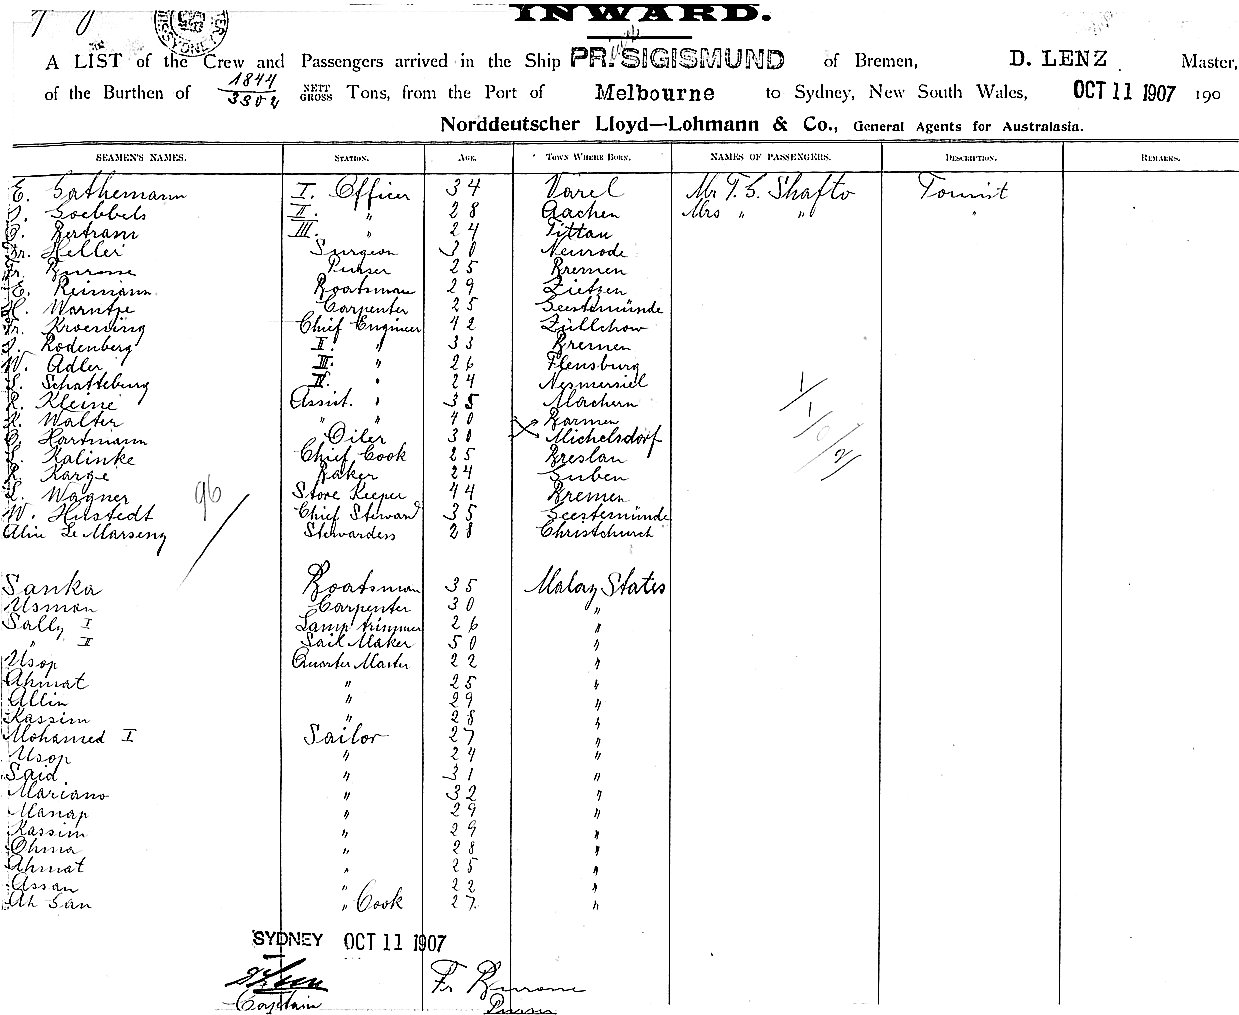 INWARD.
A LIST of the Crew and Passengers arrived in the Ship PR. SIGISMUND of Bremen, D. LENZ Master,
of the Burthen of 1844 3302 NETT GROSS Tons, from the Port of Melbourne to Sydney, New South Wales, OCT 11 1907 190
Norddeutscher Lloyd—Lohmann & Co., General Agents for Australasia.
SEAMEN'S NAMES. STATION. AGE. TOWN WHERE BORN. NAMES OF PASSENGERS. DESCRIPTION. REMARKS.
E. Gathemann I. Officer 34 Varel Mr T. G. Shafto Tourist
Goebbels II. " 28 Aachen Mrs " " "
Bertram III. " 24 Zittau
Fr. Heller Surgeon 30 Neurode
Fr. Burome Purser 25 Bremen
E. Reimann Boatsman 29 Zietzen
H. Warntje Carpenter 25 Geestemünde
Fr. Kroening Chief Engineer 42 Züllchow
Rodenberg II. " 33 Bremen
W. Adler III. " 26 Flensburg
Schatteburg " 24 Nesmersiel
Kleine Assist. " 35 Machern
Walter " " 40 Barmen
Hartmann Oiler 30 Michelsdorf
Kalinke Chief Cook 25 Breslau
Karge Baker 24 Guben
Wagner Store Keeper 44 Bremen
W. Hustedt Chief Steward 35 Geestemünde
Alin Le Marseny Stewardess 28 Christchurch
96
Sanka Boatsman 35 Malay States
Usman Carpenter 30 "
Sally I Lamp trimmer 26 "
" II Sail Maker 50 "
Usop Quarter Master 22 "
Ahmat " 25 "
Allin " 29 "
Kassim " 28 "
Mohamed I Sailor 27 "
Usop " 24 "
Said " 31 "
Mariano " 32 "
Manap " 29 "
Kassim " 29 "
Ohma " 28 "
Ahmat " 25 "
Assan " 22 "
Ah San " Cook 27 "
SYDNEY OCT 11 1907
Fr Burome
Captain Purser